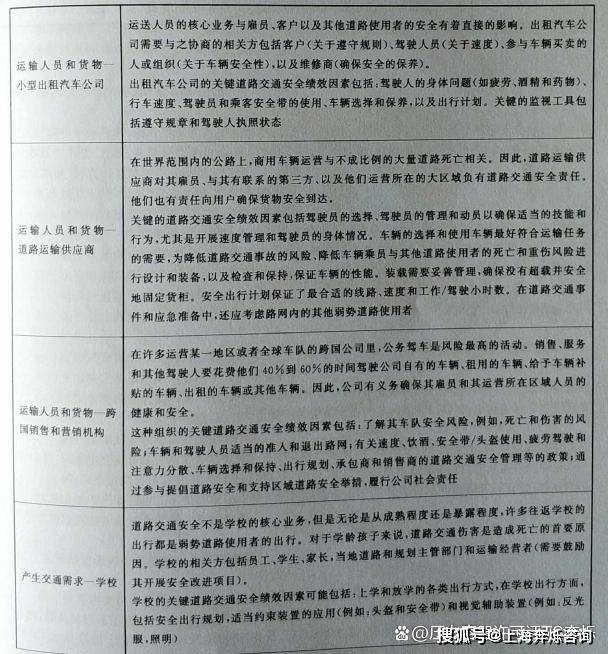 运输人员和货物—
小型出租汽车公司
运送人员的核心业务与雇员、客户以及其他道路使用者的安全有着直接的影响。出租汽车公
司需要与之协商的相关方包括客户(关于遵守规则)、驾驶人员(关于速度)、参与车辆买卖的
人或组织(关于车辆安全性),以及维修商(确保安全的保养)。
出租汽车公司的关键道路交通安全绩效因素包括:驾驶人的身体问题(如疲劳、酒精和药物)、
行车速度、驾驶员和乘客安全带的使用、车辆选择和保养,以及出行计划。关键的监视工具包
括遵守规章和驾驶人执照状态
运输人员和货物—
道路运输供应商
在世界范围内的公路上,商用车辆运营与不成比例的大量道路死亡相关。因此,道路运输供
应商对其雇员、与其有联系的第三方、以及他们运营所在的大区域负有道路交通安全责任。
他们也有责任向用户确保货物安全到达。
关键的道路交通安全绩效因素包括驾驶员的选择、驾驶员的管理和动员以确保适当的技能和
行为,尤其是开展速度管理和驾驶员的身体情况。车辆的选择和使用车辆最好符合运输任务
的需要,为降低道路交通事故的风险、降低车辆乘员与其他道路使用者的死亡和重伤风险进
行设计和装备,以及检查和保持,保证车辆的性能。装载需要妥善管理,确保没有超载并安全
地固定货柜。安全出行计划保证了最合适的线路、速度和工作/驾驶小时数。在道路交通事
件和应急准备中,还应考虑路网内的其他弱势道路使用者
运输人员和货物—跨
国销售和营销机构
在许多运营某一地区或者全球车队的跨国公司里,公务驾车是风险最高的活动。销售、服务
和其他驾驶人要花费他们40%到60%的时间驾驶公司自有的车辆、租用的车辆、给予车辆补
贴的车辆、出租的车辆或其他车辆。因此,公司有义务确保其雇员和其运营所在区域人员的
健康和安全。
这种组织的关键道路交通安全绩效因素包括:了解其车队安全风险,例如,死亡和伤害的风
险;车辆和驾驶人员适当的准入和退出路网;有关速度、饮酒、安全带/头盔使用、疲劳驾驶和
注意力分散、车辆选择和保持、出行规划、承包商和销售商的道路交通安全管理等的政策;通
过参与提倡道路安全和支持区域道路安全举措,履行公司社会责任
产生交通需求—学校
道路交通安全不是学校的核心业务,但是无论是从成熟程度还是暴露程度,许多往返学校的
出行都是弱势道路使用者的出行。对于学龄孩子来说,道路交通伤害是造成死亡的首要原
因。学校的相关方包括员工、学生、家长,当地道路和规划主管部门和运输经营者(需要鼓励
其开展安全改进项目)。
学校的关键道路交通安全绩效因素可能包括:上学和放学的各类出行方式,在学校出行方面,
包括安全出行规划,适当约束装置的应用(例如:头盔和安全带)和视觉辅助装置(例如:反光
服,照明)
搜狐号@上海奔烁咨询